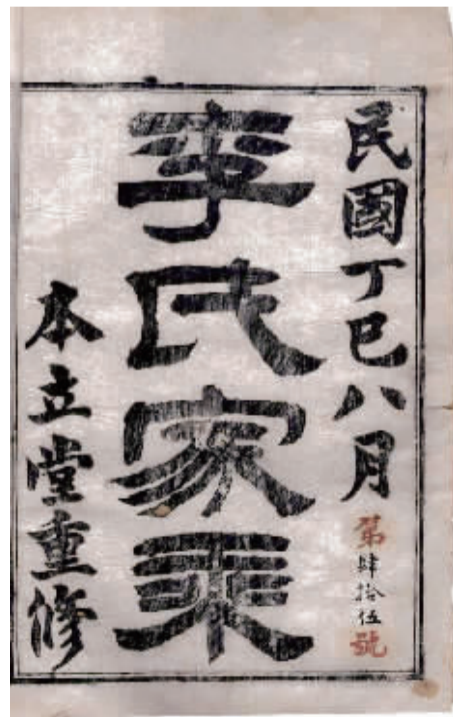 民國丁巳八月
第肆拾伍號
李氏家乘
本立堂重修